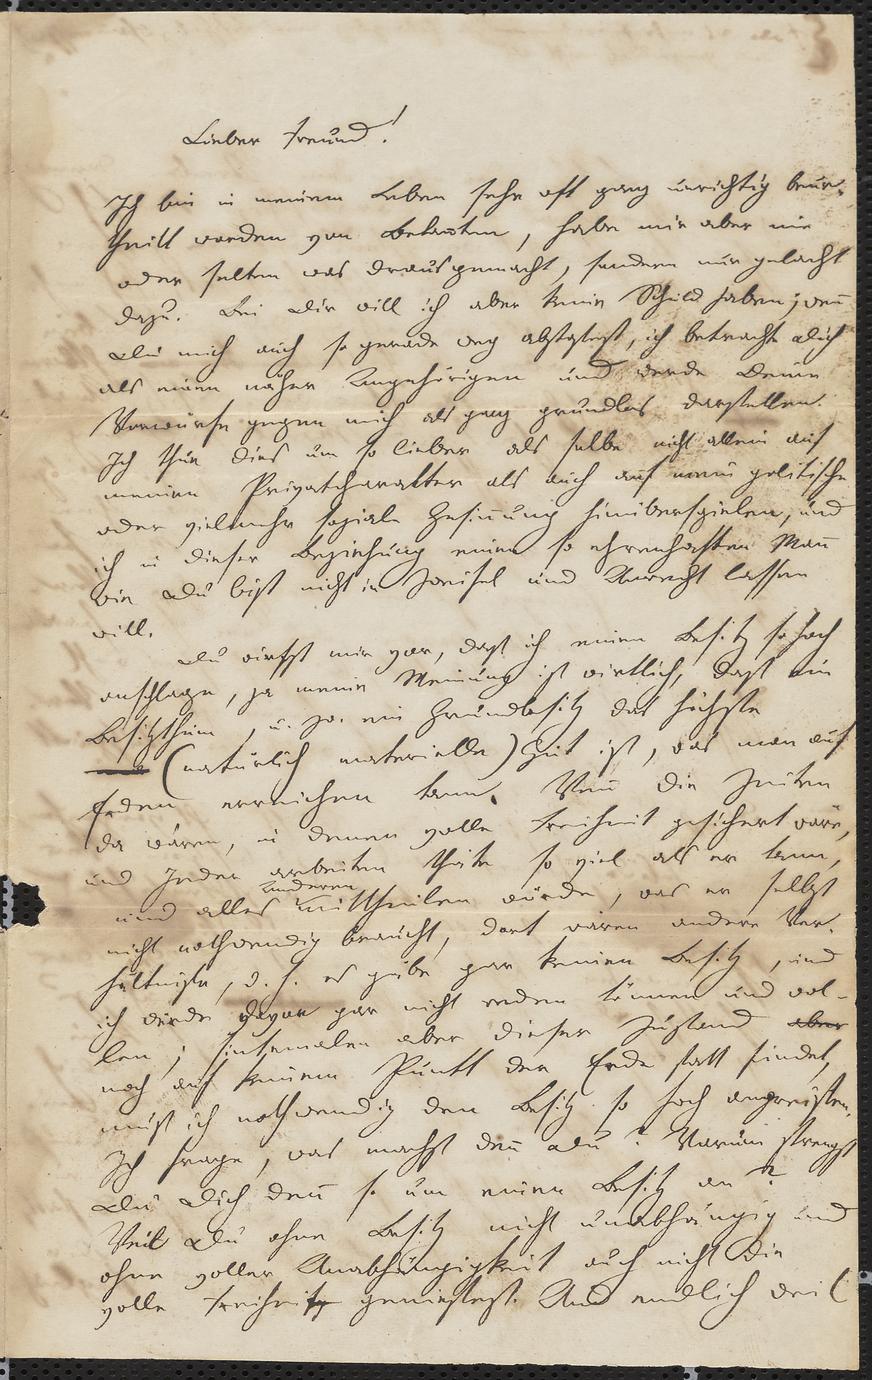 Lieber Freund!
Ich bin in meinem Leben sehr oft ganz unrichtig beur-
theilt worden von Bekannten, habe mir aber nie
oder selten was drausgemacht, sondern nur gelacht
dazu. Bei Dir will ich aber keine Schuld haben; wenn
Du mich auch so gerade weg, ich betrachte Dich
als einen näher Angehörigen und werde Deine
Vorwürfe gegen mich als ganz grundlos darstellen.
Ich thue dies um so lieber als selbe nicht allein auf
meinen Privatcharakter als auch auf mein politische
oder vielmehr soziale Gesinnung hinüberspielen, und
ich in dieser Beziehung einen so ehrenhaften Mann
wie Du bist nicht in Zweifel und Unrecht lassen
will.
Du wirfst mir vor, daß ich einen Besitz so hoch
anschlage, ja meine Meinung ist wirklich, daß ein
Besitzthum, u. zw. ein Grundbesitz das höchste
(natürlich materielle) Gut ist, was man auf
Erden erreichen kann. Wenn die Zeiten
da wären, in denen volle Freiheit gesichert wäre,
und Jeder arbeiten thäte so viel als er kann,
und alles Anderen mittheilen würde, was er selbst
nicht nothwendig braucht, dort wären andere Ver-
hältniße, d. h. es gäbe gar keinen Besitz, und
ich würde davon gar nicht reden können und wol-
len; sintemalen aber dieser Zustand aber
noch auf keinem Punkt der Erde statt findet,
muß ich nothwendig den Besitz so hoch anpreisen.
Ich frage, was machst denn Du? Warum strengst
Du Dich denn so um einen Besitz an?
Weil Du ohne Besitz nicht unabhängig und
ohne voller Unabhängigkeit auch nicht die
volle Freiheit genießest. Und endlich weil